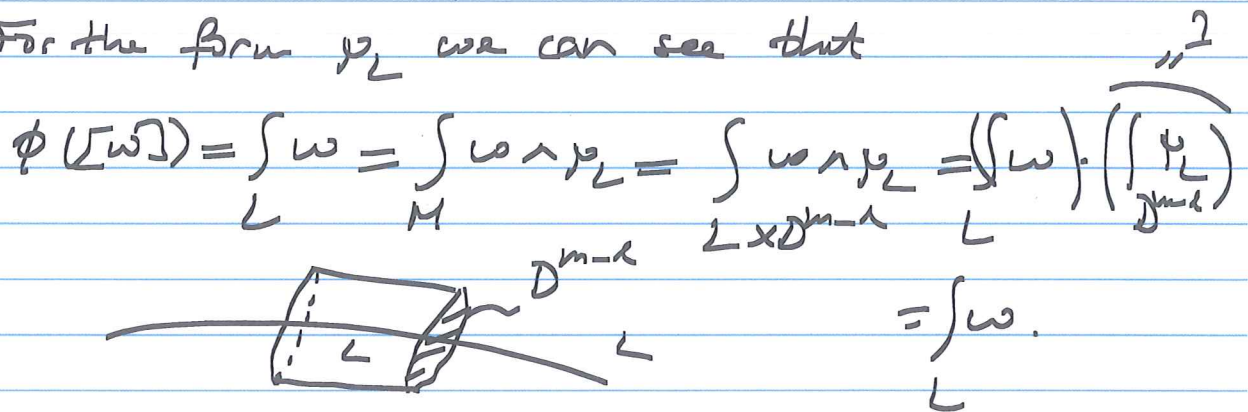 For the form μ_L we can see that
φ([ω]) = ∫_L ω = ∫_M ω ∧ μ_L = ∫_{L×D^{m-l}} ω ∧ μ_L = (∫_L ω) · (∫_{D^{m-l}} μ_L) "1
D^{m-l}
L L
= ∫_L ω.